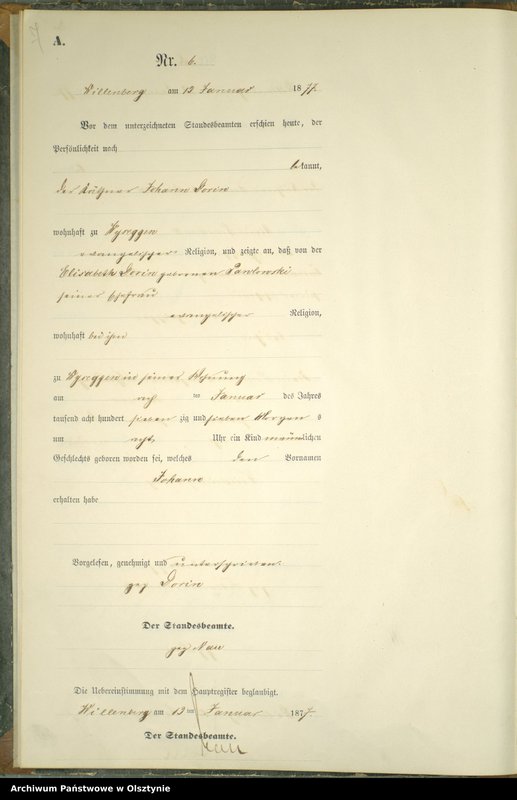 A.
Nr. 6.
Willenberg am 13 Januar 1877.
Vor dem unterzeichneten Standesbeamten erschien heute, der
Persönlichkeit nach
bekannt,
der Käthner Johann Dorin
wohnhaft zu Wyreggen
evangelischer Religion, und zeigte an, daß von der
Elisabeth Dorin geborenen Pawlowski
seiner Ehefrau
evangelischer Religion,
wohnhaft bei ihm
zu Wyreggen in seiner Wohnung
am ten Januar des Jahres
tausend acht hundert sieben zig und sieben Morgen s
um acht Uhr ein Kind männlichen
Geschlechts geboren worden sei, welches den Vornamen
Johann
erhalten habe
Vorgelesen, genehmigt und unterschrieben.
gez Dorin
Der Standesbeamte.
gez Nau
Die Uebereinstimmung mit dem Hauptregister beglaubigt.
Willenberg am 13 ten Januar 1877.
Der Standesbeamte.
Nau
Archiwum Państwowe w Olsztynie